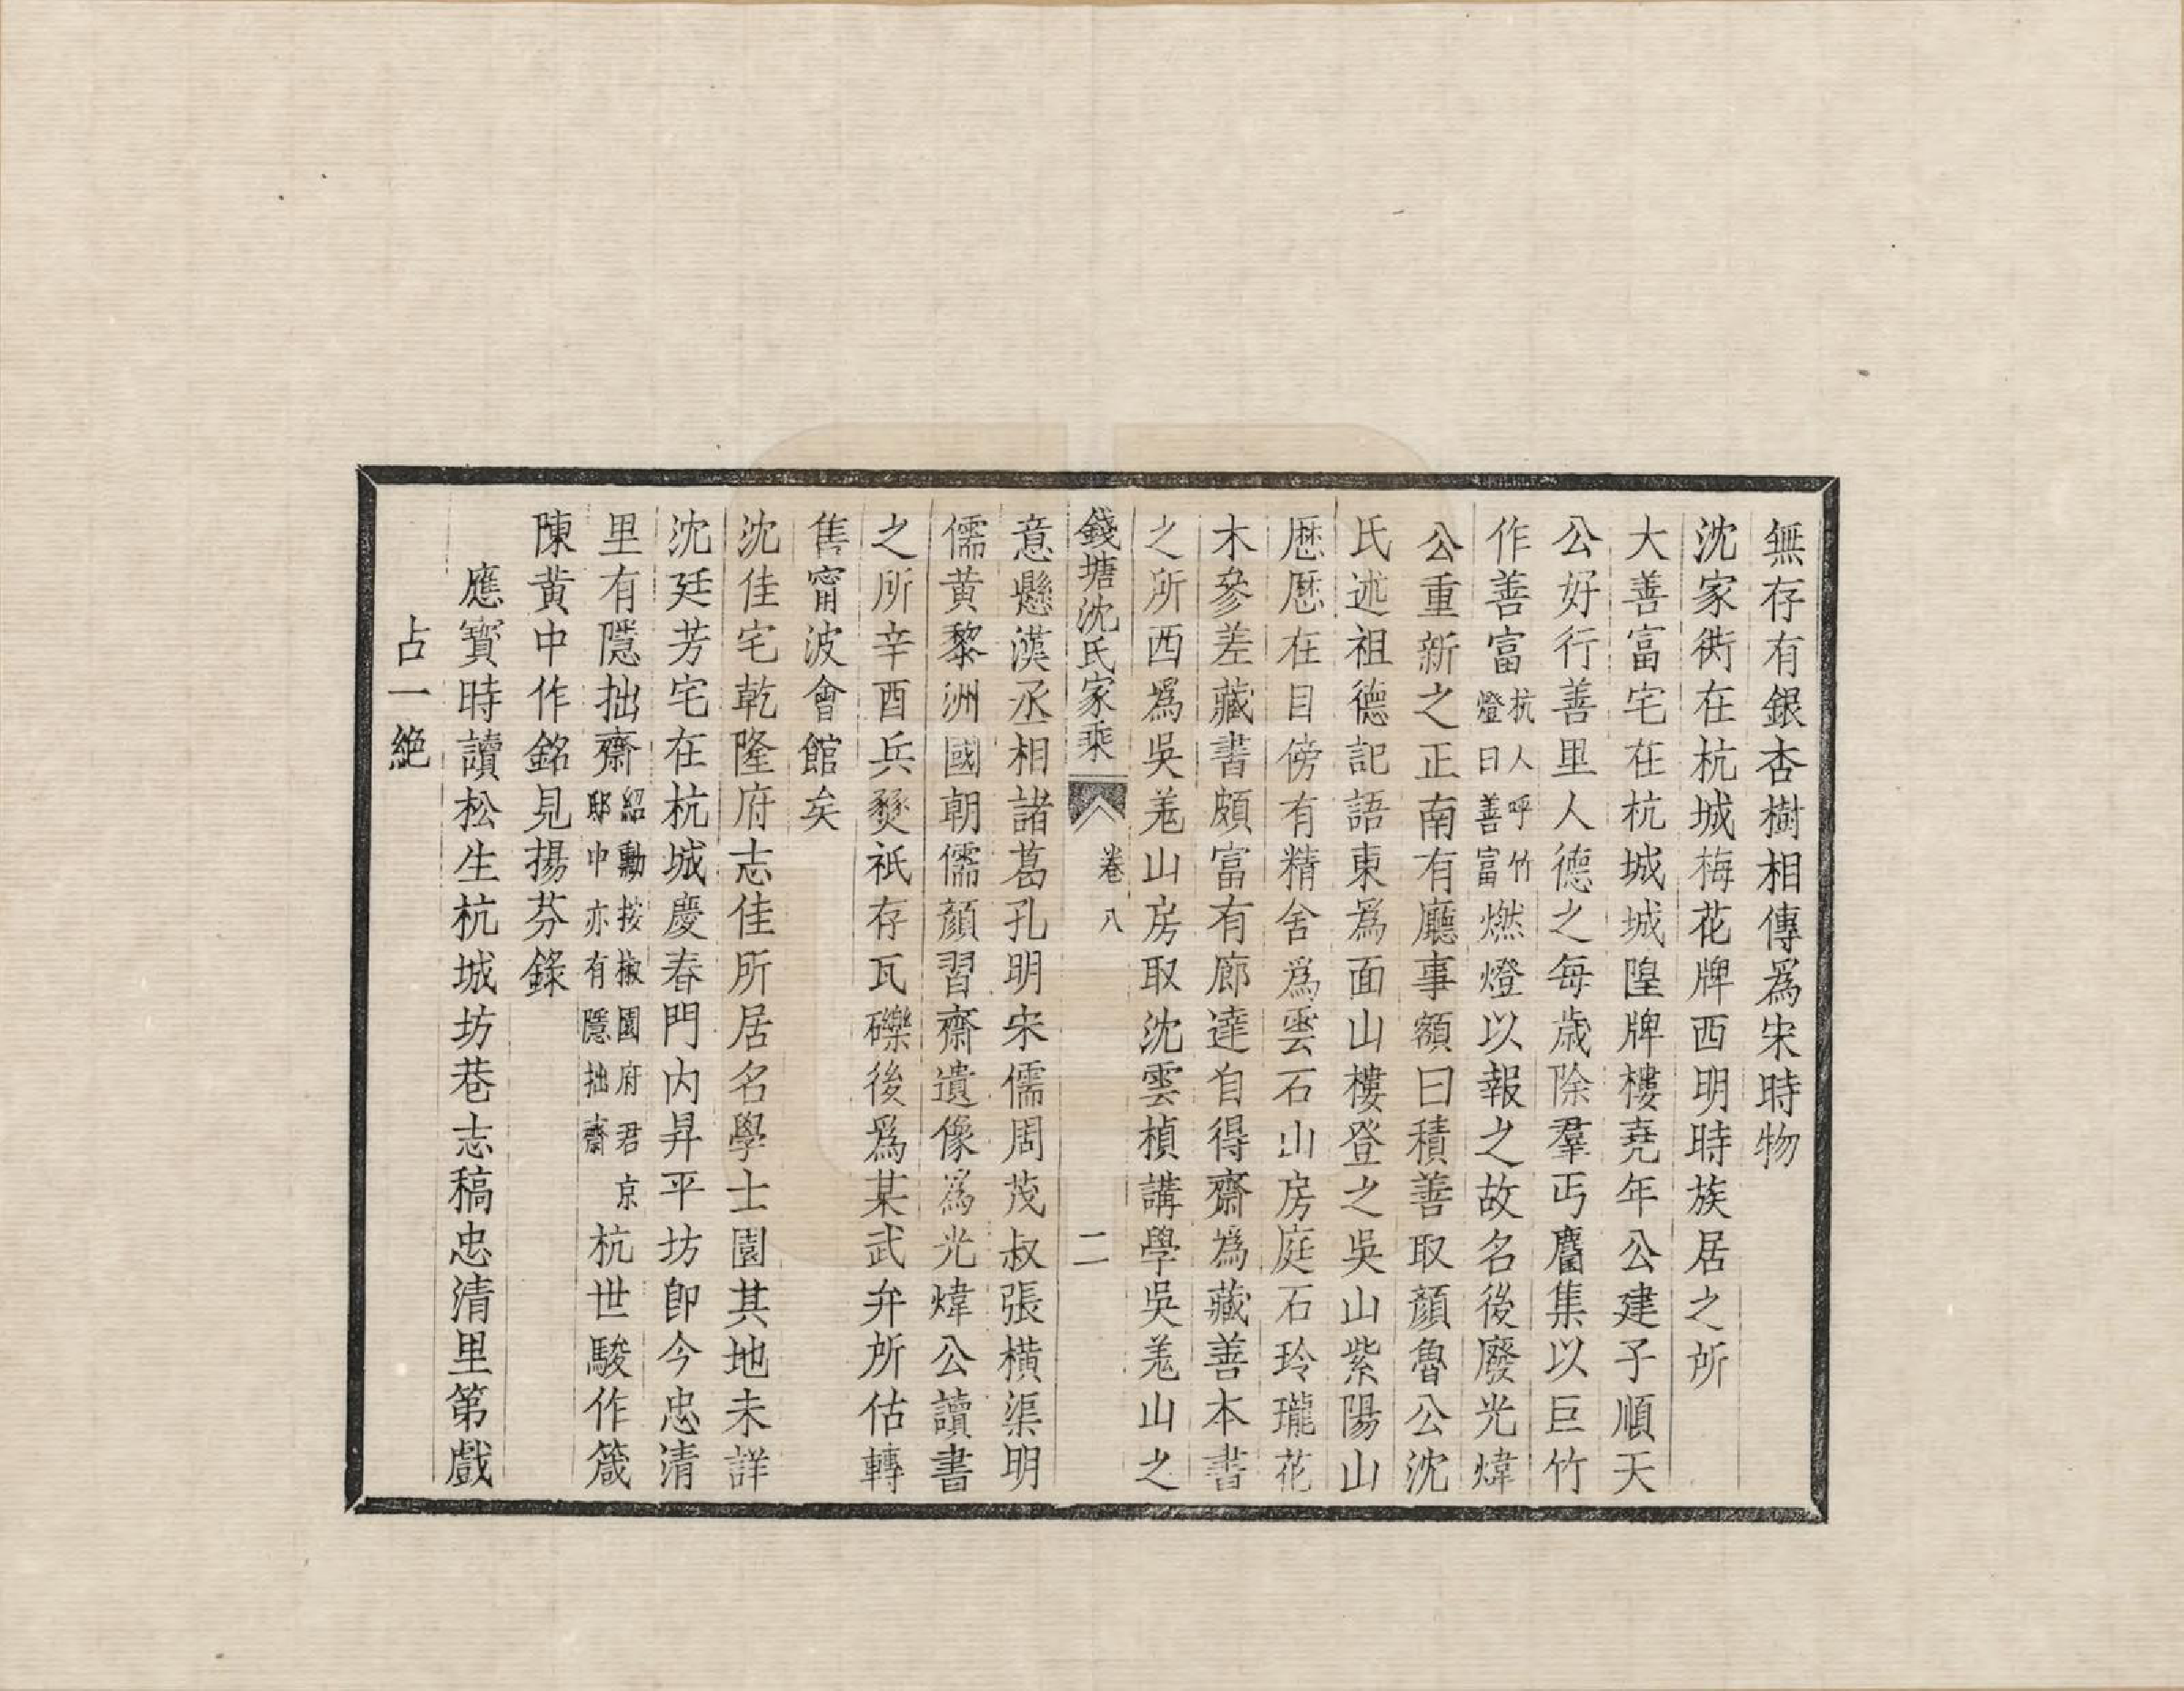 無存有銀杏樹相傳爲宋時物
沈家衖在杭城梅花牌西明時族居之所
大善富宅在杭城城隍牌樓堯年公建子順天
公好行善里人德之每歲除羣丐麕集以巨竹
作善富杭人呼竹燈曰善富燃燈以報之故名後廢光煒
公重新之正南有廳事額曰積善取顏魯公沈
氏述祖德記語東爲面山樓登之吳山紫陽山
歷歷在目傍有精舍爲雲石山房庭石玲瓏花
木參差藏書頗富有廊達自得齋爲藏善本書
之所西爲吳羗山房取沈雲楨講學吳羗山之
錢塘沈氏家乘 卷八 二
意懸漢丞相諸葛孔明宋儒周茂叔張橫渠明
儒黄黎洲國朝儒顏習齋遺像爲光煒公讀書
之所辛酉兵燹祇存瓦礫後爲某武弁所估轉
售甯波會館矣
沈佳宅乾隆府志佳所居名學士園其地未詳
沈廷芳宅在杭城慶春門内昇平坊卽今忠清
里有隱拙齋紹勳按椒園府君京邸中亦有隱拙齋杭世駿作箴
陳黄中作銘見揚芬錄
應寶時讀松生杭城坊巷志稿忠清里第戲
占一絶